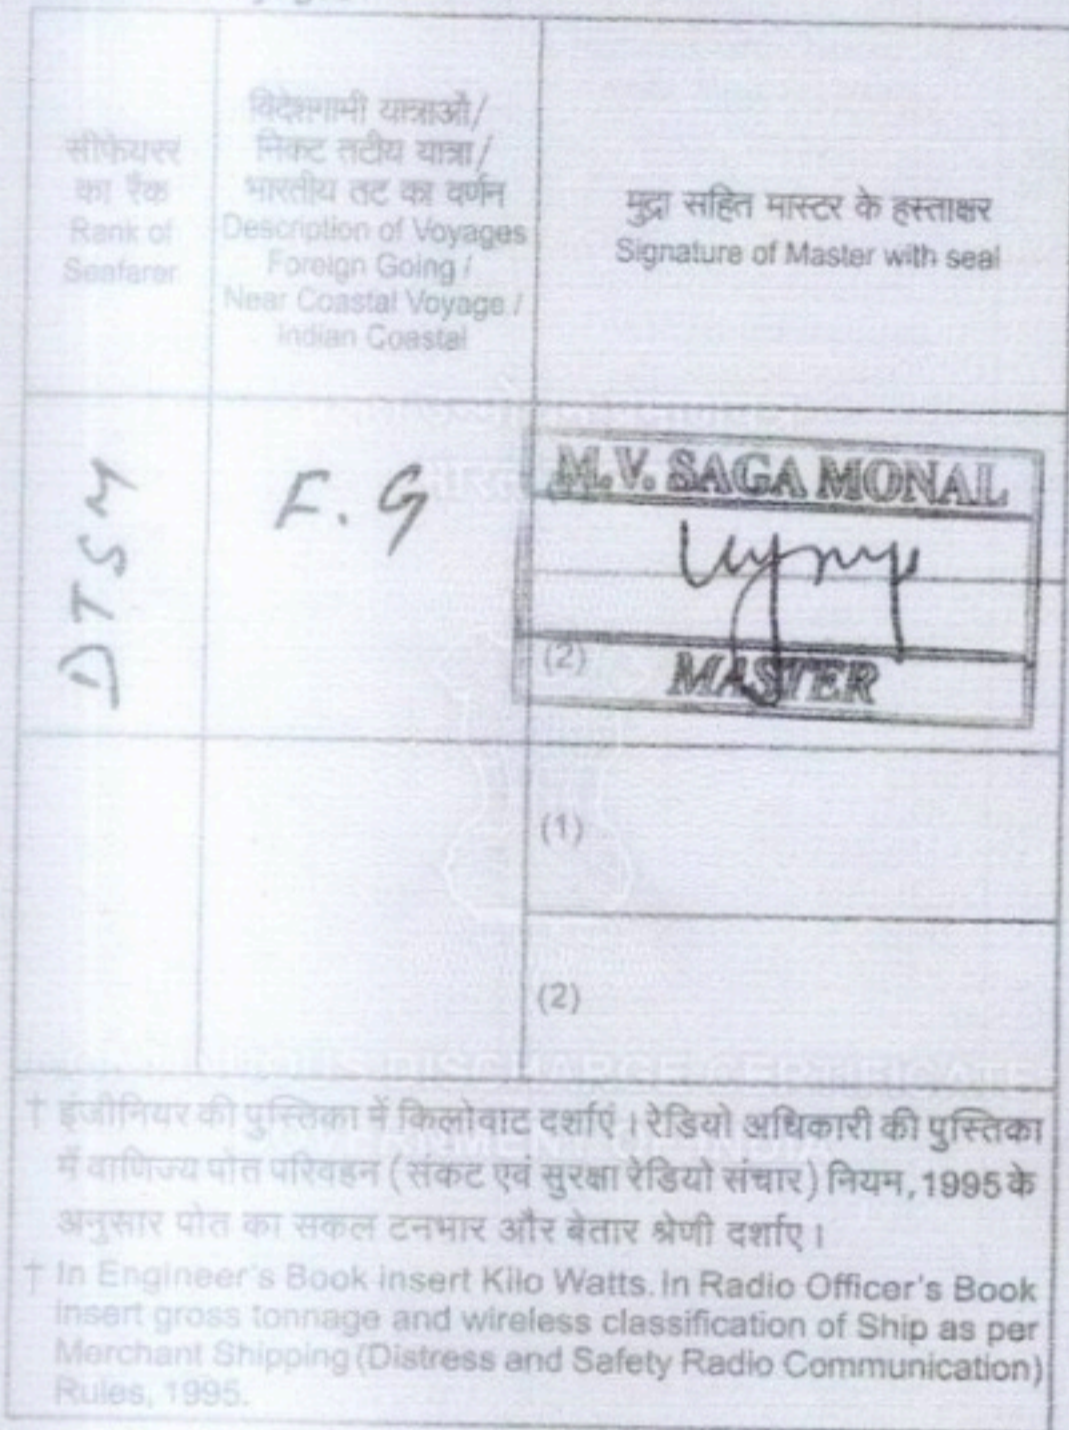 सीफेयरर
का रैंक
Rank of
Seafarer
विदेशगामी यात्राओं/
निकट तटीय यात्रा/
भारतीय तट का वर्णन
Description of Voyages
Foreign Going /
Near Coastal Voyage /
Indian Coastal
मुद्रा सहित मास्टर के हस्ताक्षर
Signature of Master with seal
DTSM
F. G
M.V. SAGA MONAL
(2)
MASTER
(1)
(2)
DISCHARGE CERTIFICATE
† इंजीनियर की पुस्तिका में किलोवाट दर्शाएं । रेडियो अधिकारी की पुस्तिका
में वाणिज्य पोत परिवहन ( संकट एवं सुरक्षा रेडियो संचार ) नियम, 1995 के
अनुसार पोत का सकल टनभार और बेतार श्रेणी दर्शाए ।
† In Engineer's Book insert Kilo Watts. In Radio Officer's Book
insert gross tonnage and wireless classification of Ship as per
Merchant Shipping (Distress and Safety Radio Communication)
Rules, 1995.